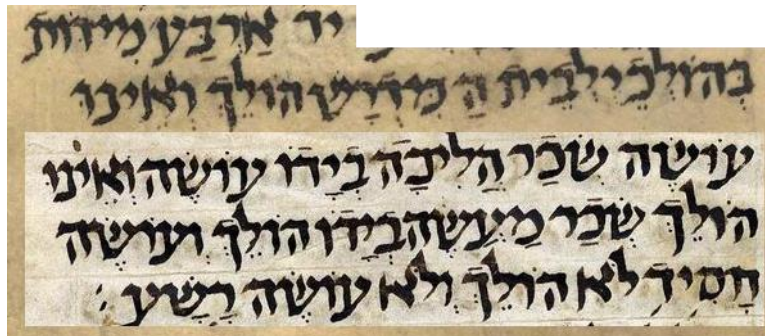 יד אַרבַּע מִידוֹת
בְּהוֹלְכֵי לְבֵית הַ מִדְרָשׁ הוֹלֵךְ וְאֵינוֹ
עוֹשֶׂה שְׂכַר הֲלִיכָה בְיָדוֹ עוֹשֶׂה וְאֵינוֹ
הוֹלֵךְ שְׂכַר מַעֲשֶׂה בְיָדוֹ הוֹלֵךְ וְעוֹשֶׂה
חָסִיד לֹא הוֹלֵךְ וְלֹא עוֹשֶׂה רָשָׁע :